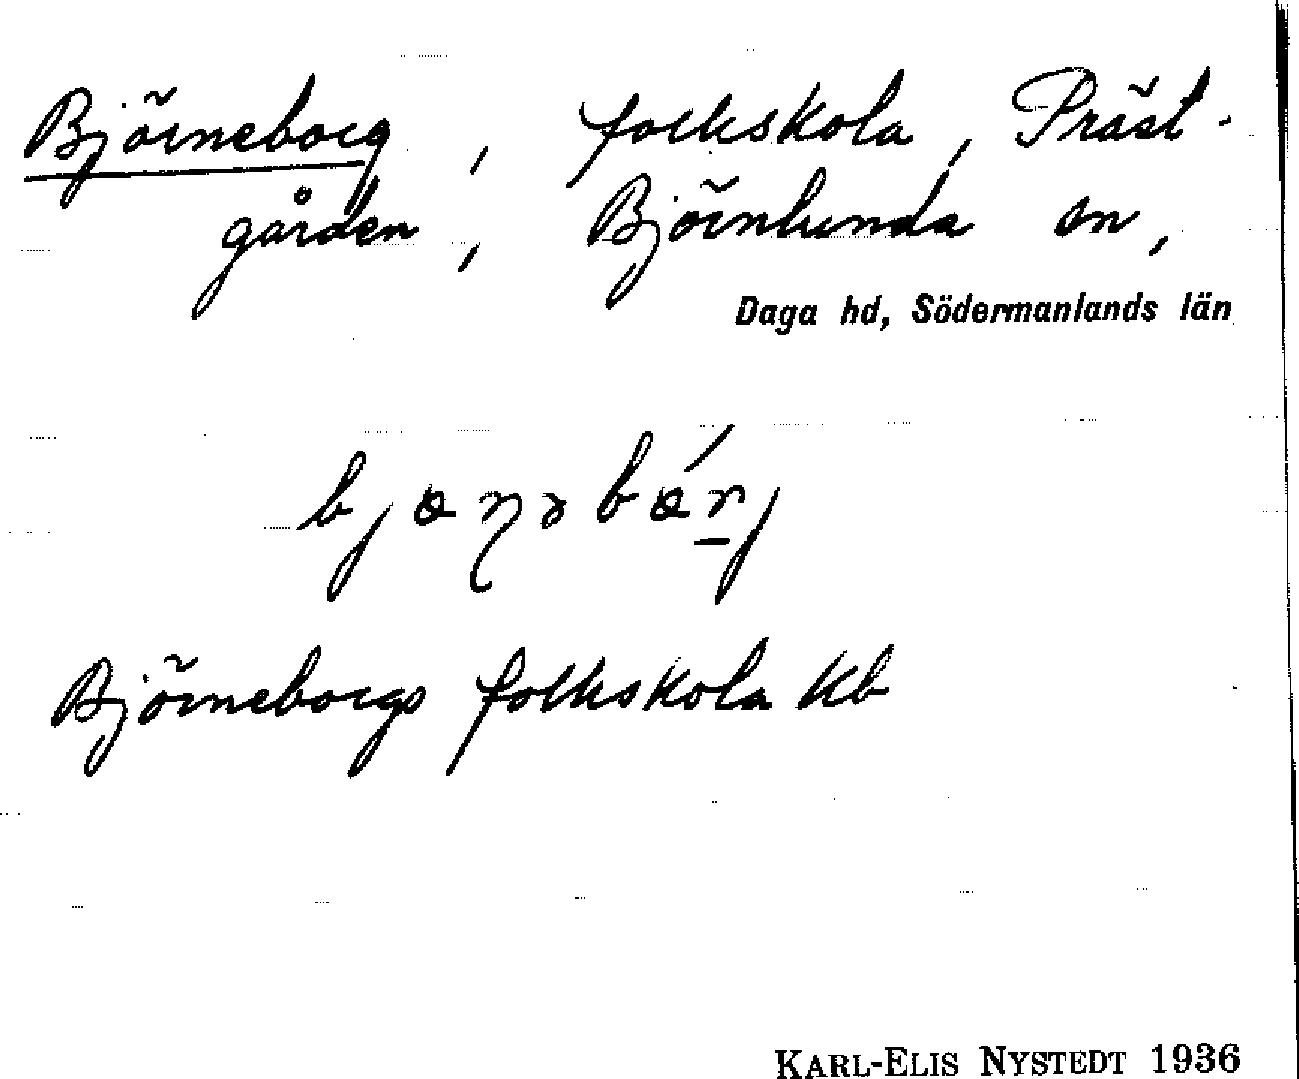 Björneborg, folkskola, Präst-
gården, Björnlunda sn,
Daga hd, Södermanlands län
Björneborgs folkskola Kb
KARL-ELIS NYSTEDT 1936